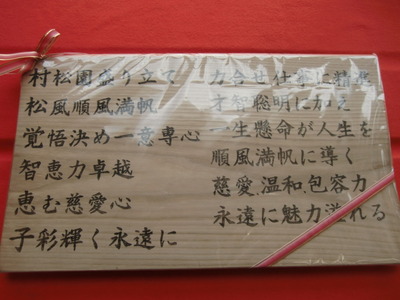 村松園盛り立て
松風順風満帆
覚悟決め一意専心
智恵力卓越
恵む慈愛心
子彩輝く永遠に
力合せ仕事に精進
才智聡明に加え
一生懸命が人生を
順風満帆に導く
慈愛、温和、包容力
永遠に魅力溢れる